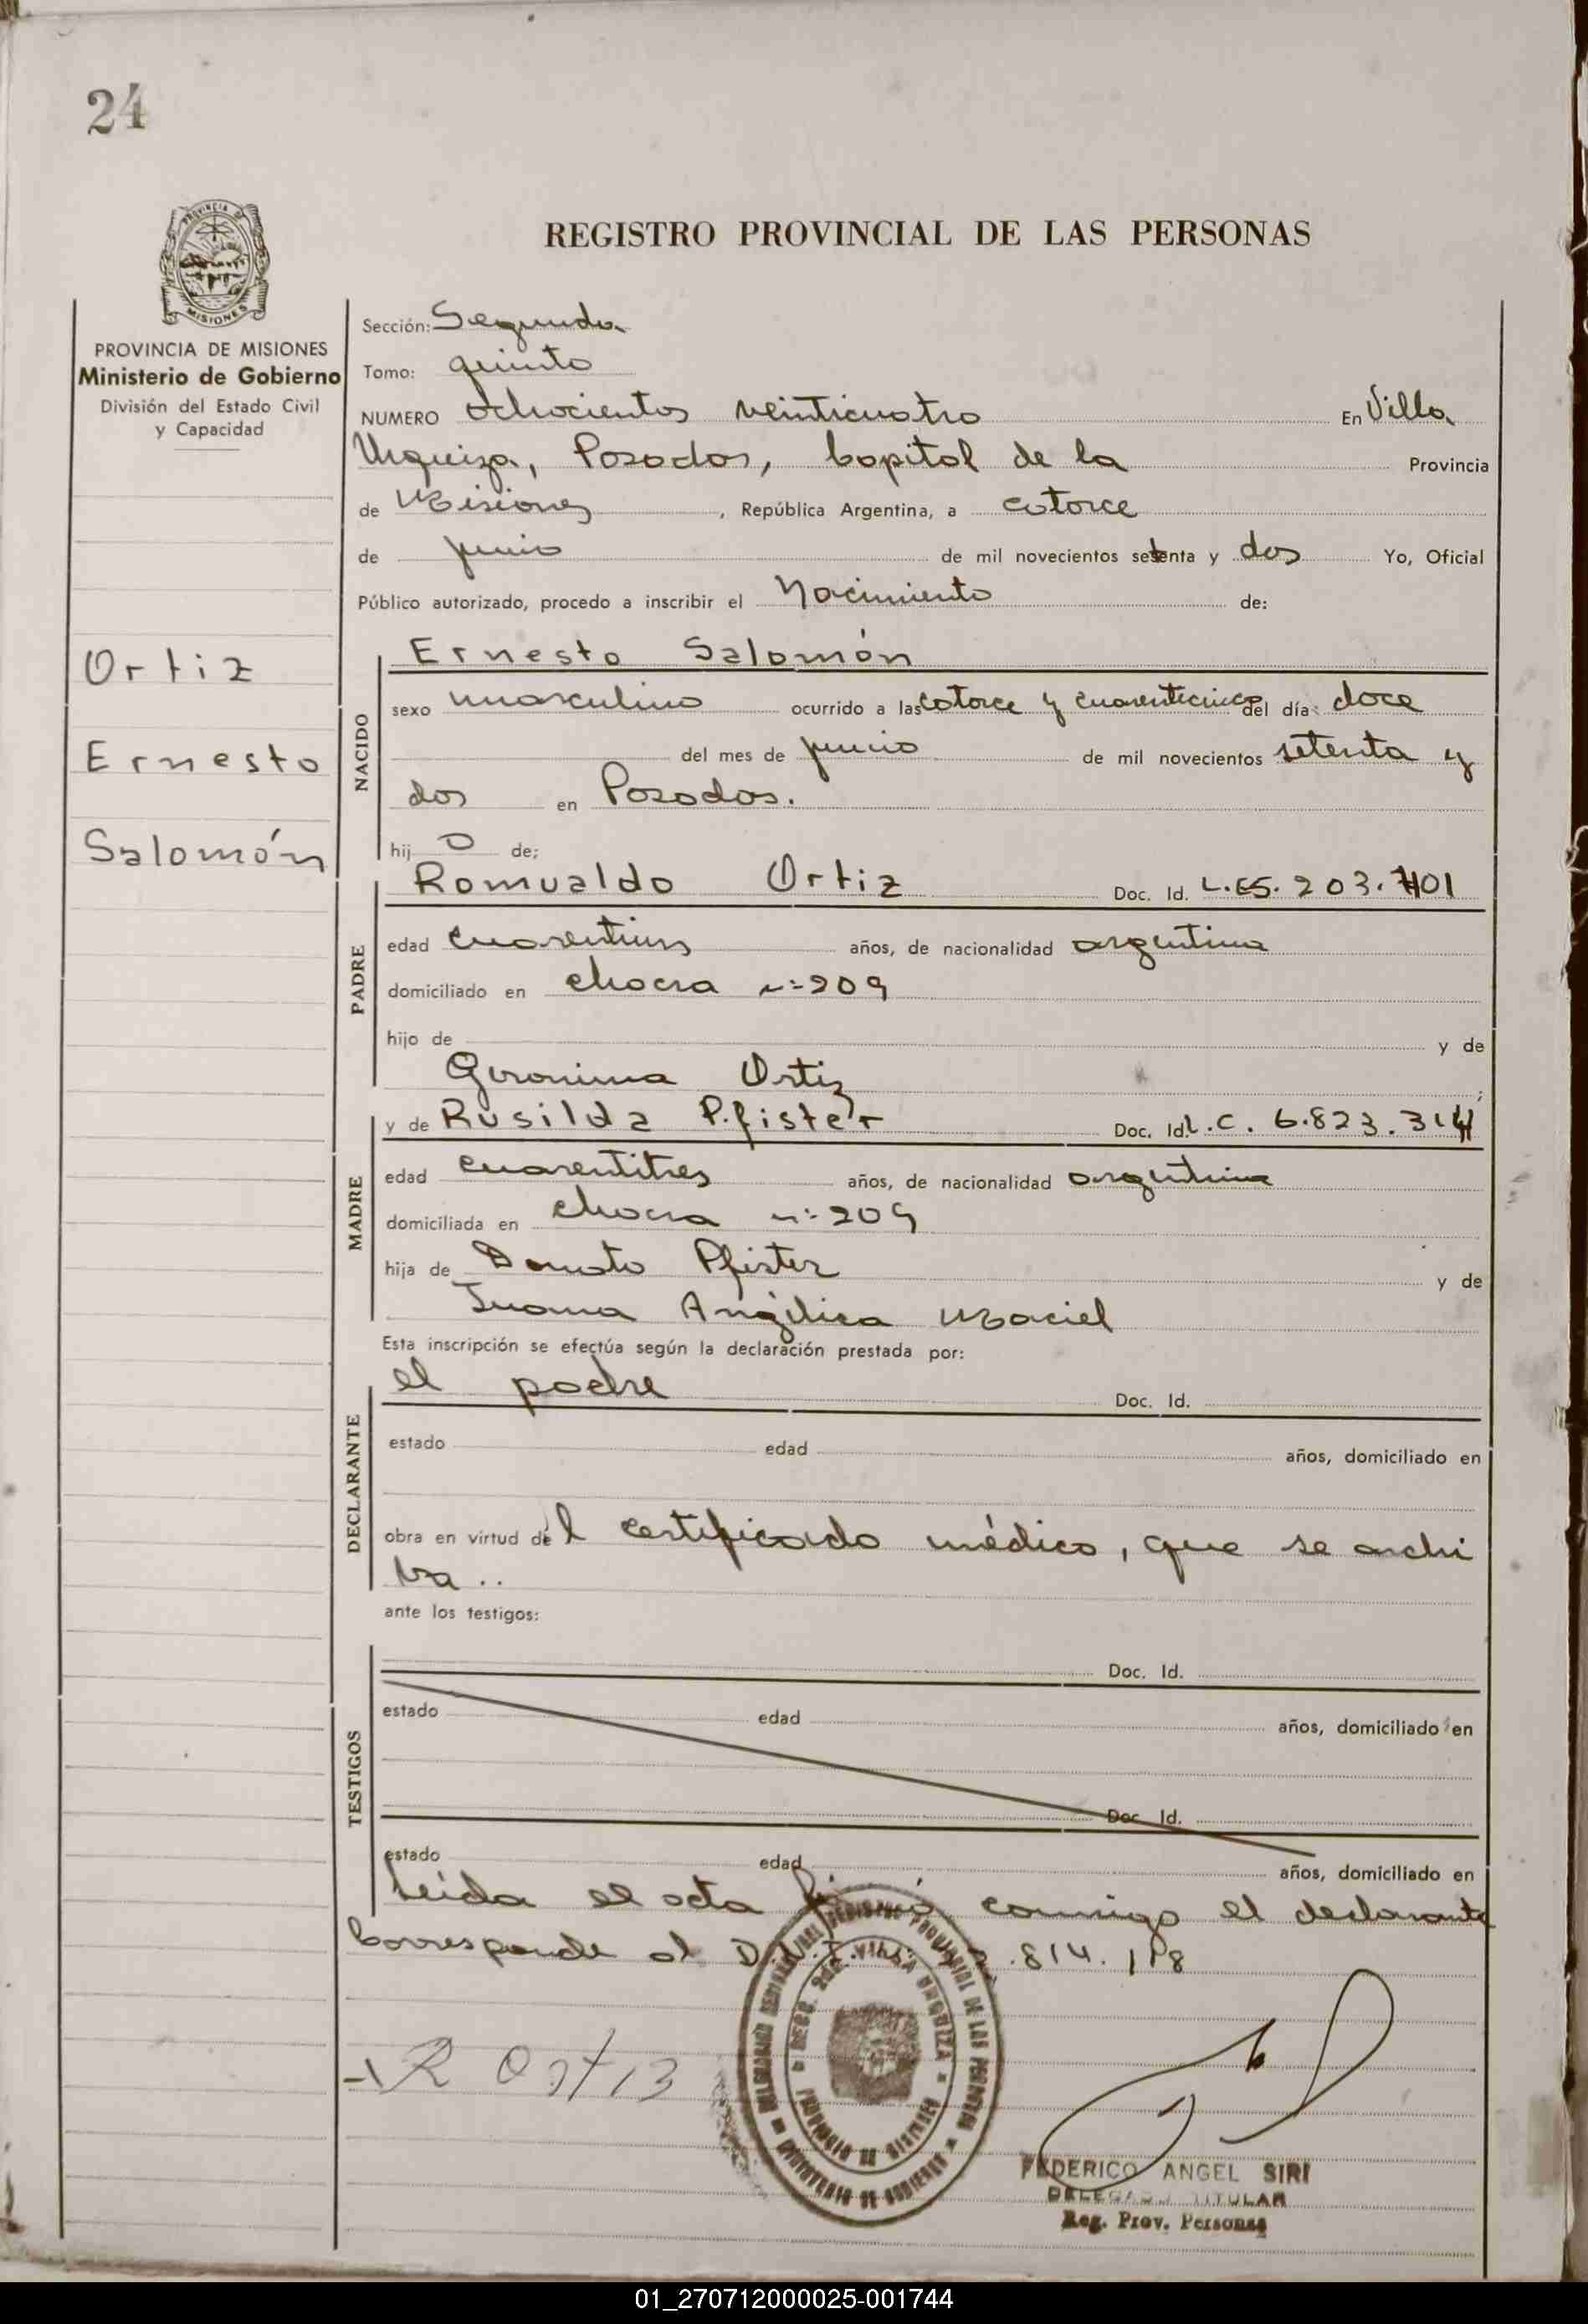 24
REGISTRO PROVINCIAL DE LAS PERSONAS
PROVINCIA DE MISIONES
Ministerio de Gobierno
División del Estado Civil
y Capacidad
Sección: Segunda
Tomo: quinto
NUMERO ochocientos veinticuatro En Villa
Urquiza, Posadas, Capital de la Provincia
de Misiones, República Argentina, a catorce
de junio de mil novecientos setenta y dos Yo, Oficial
Público autorizado, procedo a inscribir el Nacimiento de:
Ortiz
Ernesto
Salomón
NACIDO
Ernesto Salomón
sexo masculino ocurrido a las catorce y cuarenticinco del día: doce
del mes de junio de mil novecientos setenta y
dos en Posadas.
hij o de;
PADRE
Romualdo Ortiz Doc. Id. L.E5.203.701
edad cuarentiun años, de nacionalidad argentina
domiciliado en chacra nº 209
hijo de y de
Geronima Ortiz
MADRE
y de Rusilda Pfister Doc. Id. L.C. 6.823.314
edad cuarentitres años, de nacionalidad argentina
domiciliada en chacra nº 209
hija de Donato Pfister y de
Juana Angélica Maciel
Esta inscripción se efectúa según la declaración prestada por:
DECLARANTE
el padre Doc. Id.
estado edad años, domiciliado en
obra en virtud del certificado médico, que se archi
va..
ante los testigos:
TESTIGOS
Doc. Id.
estado edad años, domiciliado en
Doc. Id.
estado edad años, domiciliado en
Leída el acta conmigo el declarante
Corresponde al .814.
R Ortiz
SECC. 2DA. VILLA URQUIZA
PROVINCIA DE MISIONES
MINISTERIO DE GOBIERNO
FEDERICO ANGEL SIRI
DELEGADO TITULAR
Reg. Prov. Personas
01_270712000025-001744